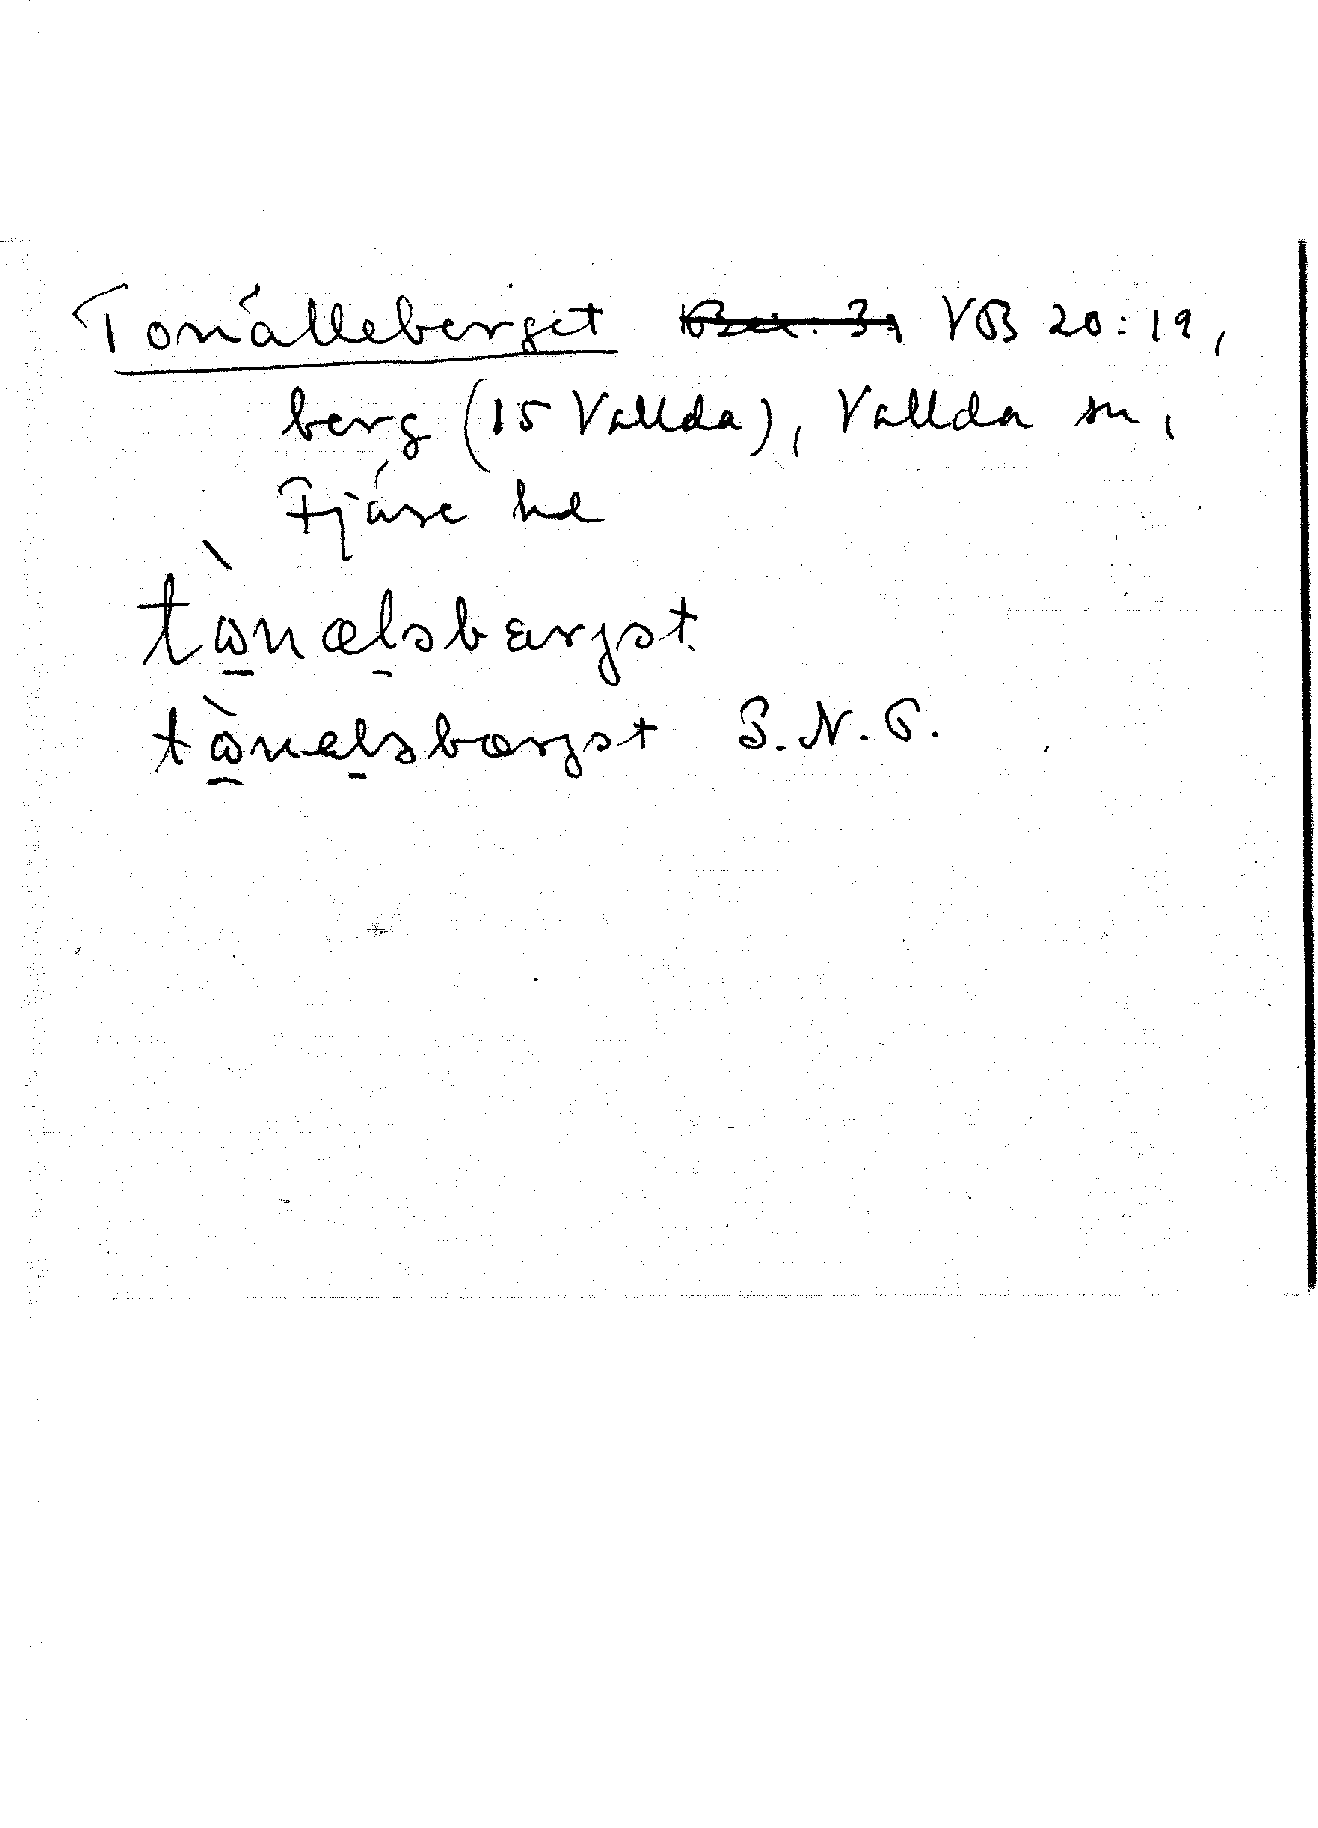 Tonälleberget VB 20:19,
berg (15 Vallda), Vallda sn,
Fjäre hd
tɷ̀nælǝbærgǝt.
tɷ̀nælǝbærgǝt S.N.G.